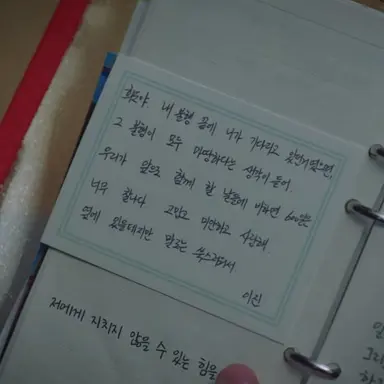 희도야 내 불행 끝에 니가 기다리고 있던거였으면,
그 불행이 모두 마땅하다는 생각이 들어
우리가 앞으로 함께 할 날들에 비하면 600일은
너무 찰나. 고맙고 미안하고 사랑해.
옆에 있을테지만 말로는 쑥스러워서
이진
저에게 지치지 않을 수 있는 힘을